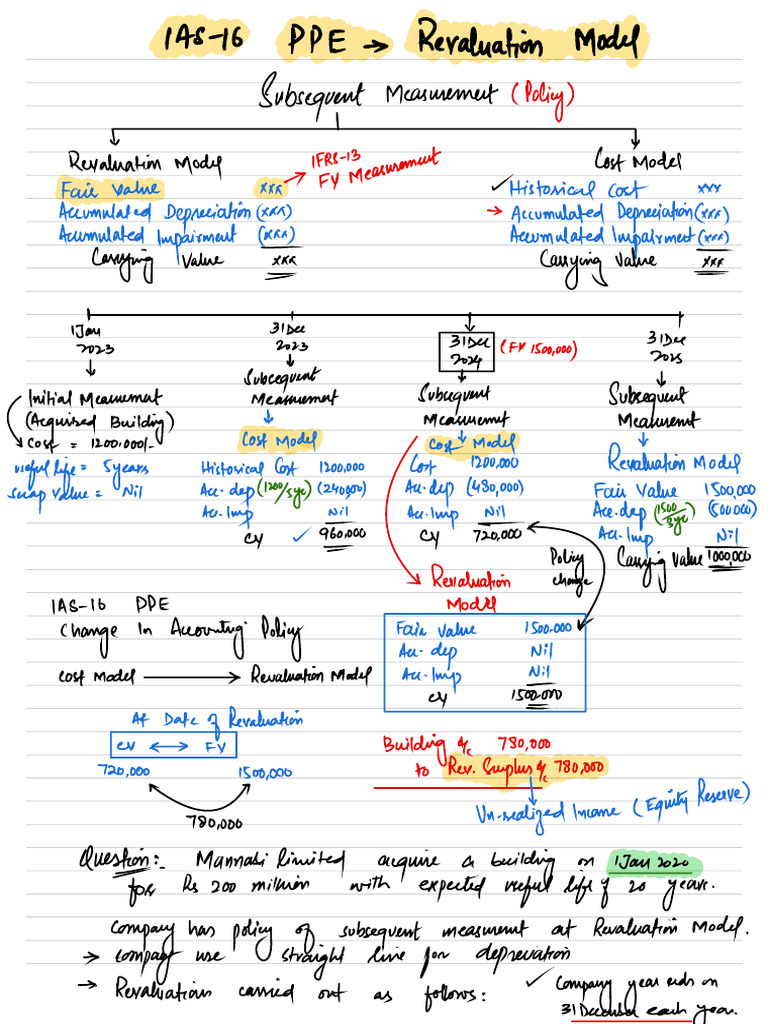 IAS-16 PPE → Revaluation Model
Subsequent Measurement (Policy)
Revaluation Model
IFRS-13
FV Measurement
Fair Value xxx
Accumulated Depreciation (xxx)
Accumulated Impairment (xxx)
Carrying Value xxx
Cost Model
✓ Historical Cost xxx
→ Accumulated Depreciation (xxx)
Accumulated Impairment (xxx)
Carrying Value xxx
1 Jan
2023
Initial Measurement
(Acquired Building)
Cost = 1200,000/-
useful life = 5 years
scrap value = Nil
31 Dec
2023
Subsequent
Measurement
Cost Model
Historical Cost 1200,000
Acc-dep (1200/5yr) (240,000)
Acc-Imp Nil
CV ✓ 960,000
31 Dec
2024
(FV 1500,000)
Subsequent
Measurement
Cost Model
Cost 1200,000
Acc-dep (480,000)
Acc-Imp Nil
CV 720,000
Policy
change
Revaluation
Model
Fair Value 1500,000
Acc-dep Nil
Acc-Imp Nil
CV 1500,000
31 Dec
2025
Subsequent
Measurement
Revaluation Model
Fair Value 1500,000
Acc-dep (1500/3yr) (500,000)
Acc-Imp Nil
Carrying Value 1000,000
IAS-16 PPE
Change In Accounting Policy
Cost Model → Revaluation Model
At Date of Revaluation
CV ↔ FV
720,000 1500,000
780,000
Building a/c 780,000
to Rev. Surplus a/c 780,000
Un-realized Income (Equity Reserve)
Question:- Mannabi limited acquire a building on 1 Jan 2020
for Rs 200 million with expected useful life of 20 years.
Company has policy of subsequent measurement at Revaluation Model.
→ Company use straight line for depreciation
→ Revaluations carried out as follows:
✓ Company year ends on
31 December each year.